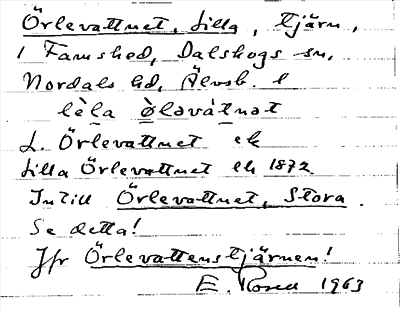 Örlevattnet, Lilla, tjärn,
i Famshed, Dalskogs sn,
Nordals hd, Älvsb. l
lèla òləvàtnət
L. Örlevattnet ek
Lilla Örlevattnet ek 1872
Intill Örlevattnet, Stora.
Se detta!
Jfr Örlevattenstjärnen!
E. Rosell 1963